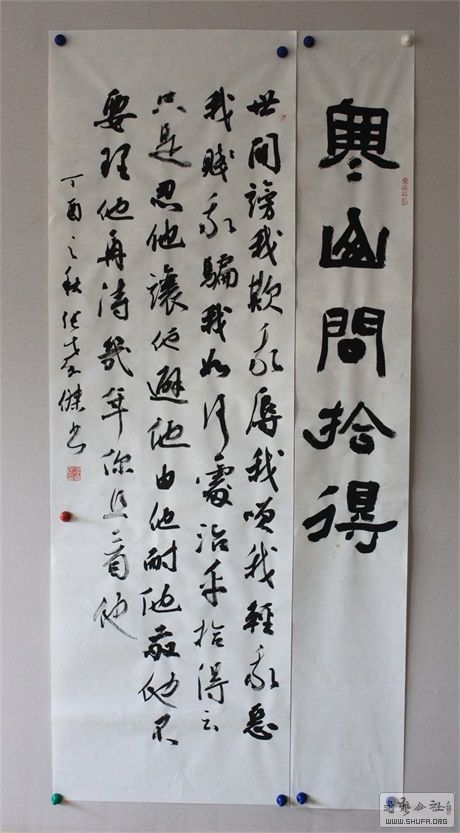 寒山問拾得
世間謗我欺我辱我笑我輕我惡
我賤我騙我如何處治乎拾得云
只是忍他讓他避他由他耐他敬他不
要理他再待幾年你且看他
丁酉之秋張志傑書
書藝公社
WWW.SHUFA.ORG